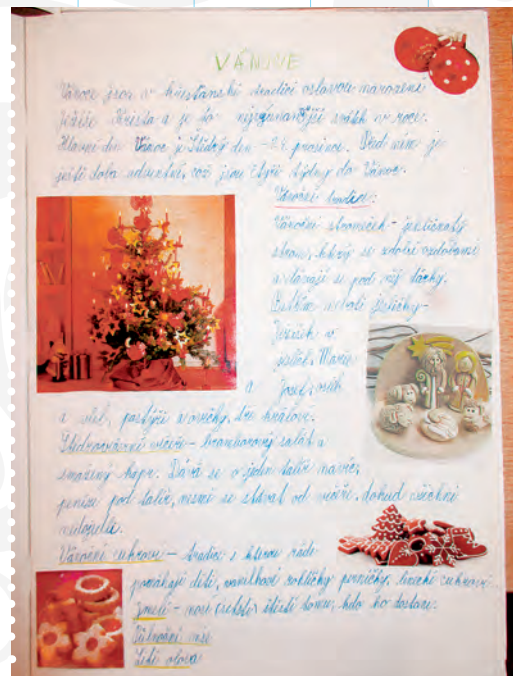 VÁNOCE
Vánoce jsou v křesťanské tradici oslavou narození
Ježíše Krista a je to nejvýznamější svátek v roce.
Hlavní den Vánoc je Štědrý den - 24. prosince. Před ním je
ještě doba adventní, což jsou čtyři týdny do Vánoc.
Vánoční tradice:
Vánoční stromeček - jehličnatý
strom, který se zdobí ozdobami
a dávají se pod něj dárky.
Betlém neboli jesličky -
Ježíšek v
jeslích, Marie
a Josef, oslík
a vůl, pastýři a ovečky, tři králové.
Štědrovečerní večeře - bramborový salát a
smažený kapr. Dává se o jeden talíř navíc,
peníze pod talíř, nesmí se vstávat od večeře, dokud všichni
nedojedli.
Vánoční cukroví - tradice s kterou rádi
pomáhají děti, vanilkové rohlíčky, perníčky, linecké cukroví.
Jmelí - nosí štěstí tomu, kdo ho dostane.
Půlnoční mše
Lití olova